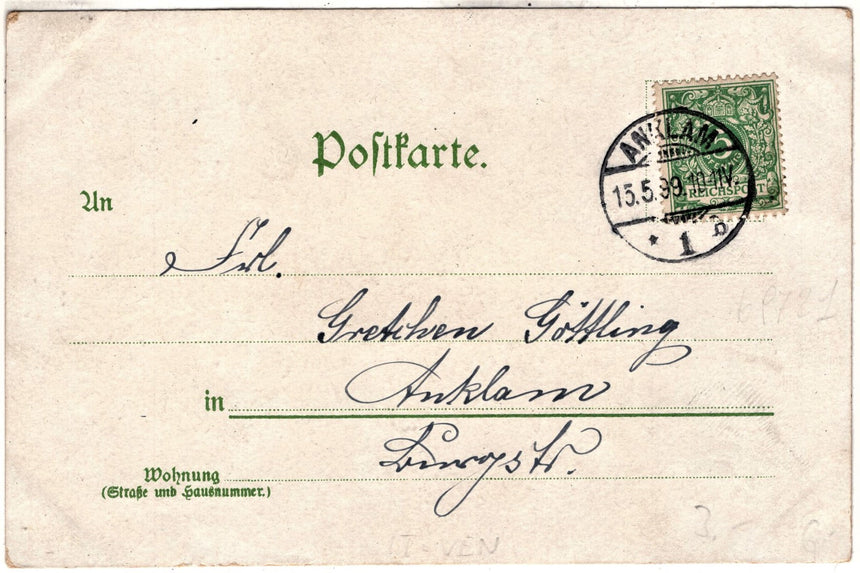 Postkarte.
ANKLAM
15.5.99.10-11V.
* 1 b
5
REICHSPOST
An
Frl.
Gretchen Göttling
in Anklam
Burgstr.
Wohnung
(Straße und Hausnummer.)
3.-